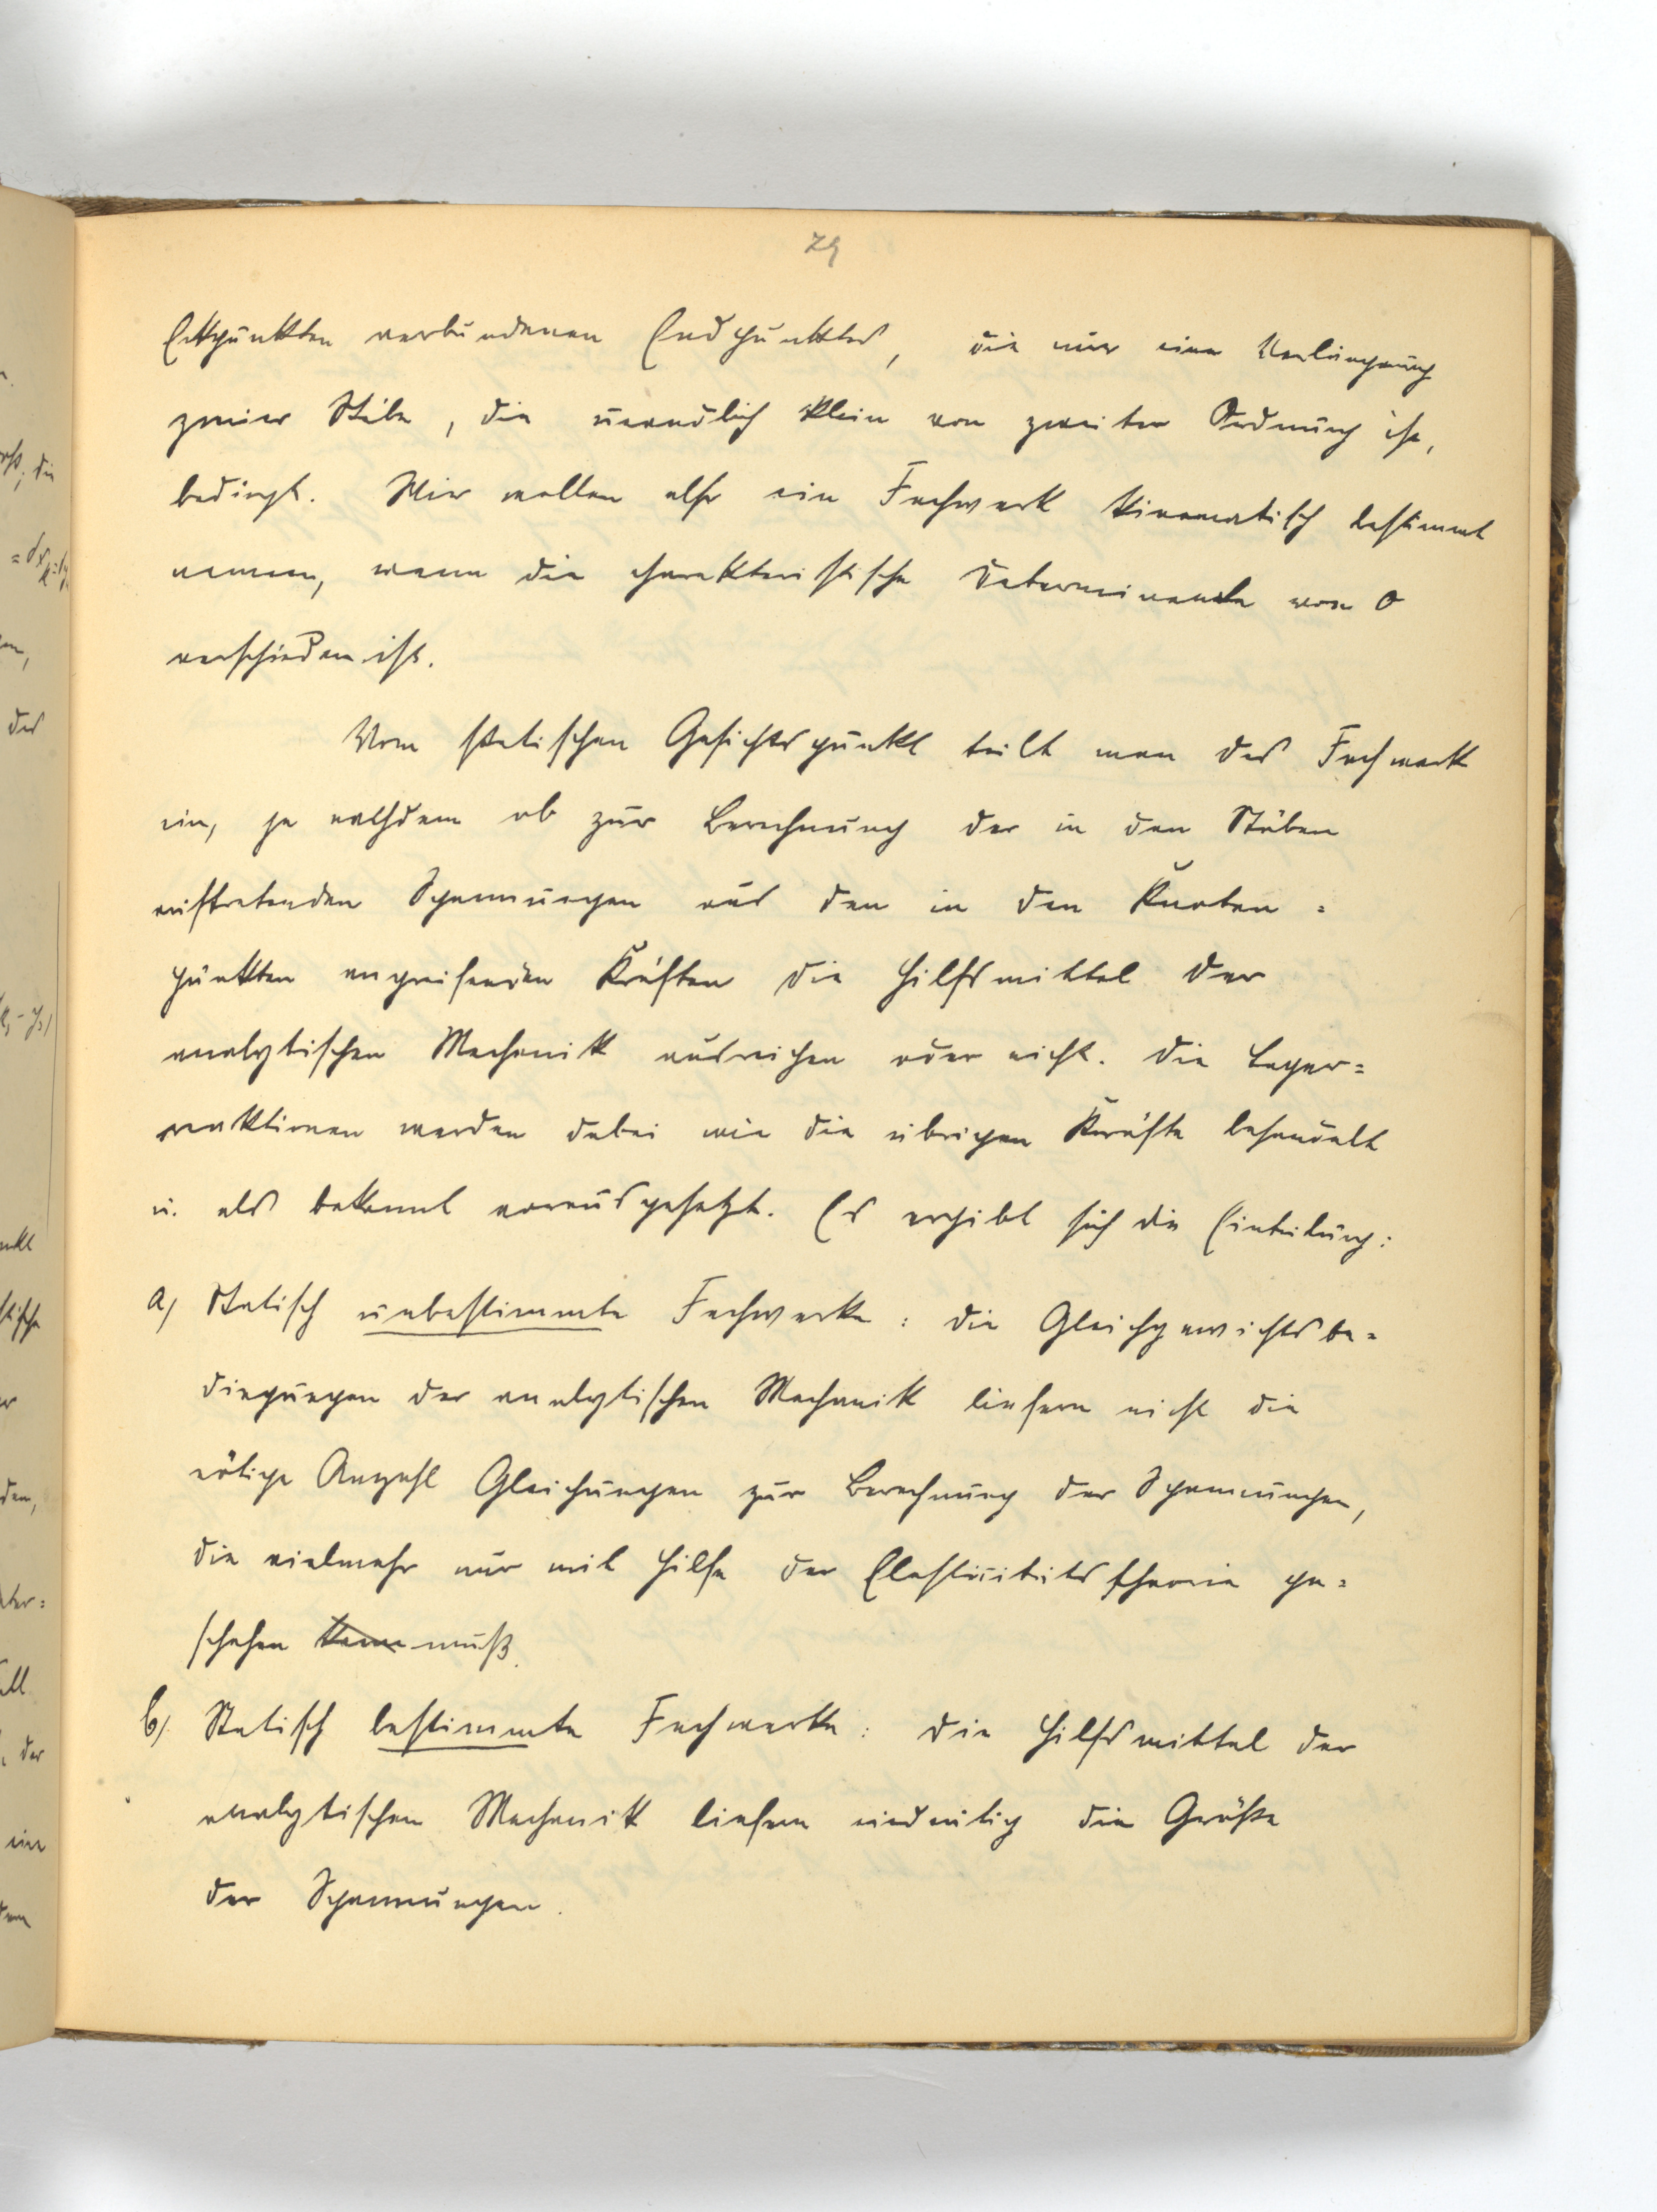 29
Eckpunkten verbundenen Endpunktes, die nur eine Verlängerung
zweier Stäbe, die unendlich klein von zweiter Ordnung ist,
bedingt. Wir wollen also ein Fachwerk kinematisch bestimmt
nennen, wenn die charakteristische Determinante von 0
verschieden ist.
Vom statischen Gesichtspunkt teilt man das Fachwerk
ein, je nachdem ob zur Berechnung der in den Stäben
auftretenden Spannungen aus den in den Knoten=
punkten angreifenden Kräften die Hilfsmittel der
analytischen Mechanik ausreichen oder nicht. Die Lager=
reaktionen werden dabei wie die übrigen Kräfte behandelt
u. als bekannt vorausgesetzt. Es ergibt sich die Einteilung:
a) Statisch unbestimmte Fachwerke: die Gleichgewichtsbe=
dingungen der analytischen Mechanik liefern nicht die
nötige Anzahl Gleichungen zur Berechnung der Spannungen,
die vielmehr nur mit Hilfe der Elastizitätstheorie ge=
schehen kann muß.
b) Statisch bestimmte Fachwerke: die Hilfsmittel der
analytischen Mechanik liefern eindeutig die Größe
der Spannungen.